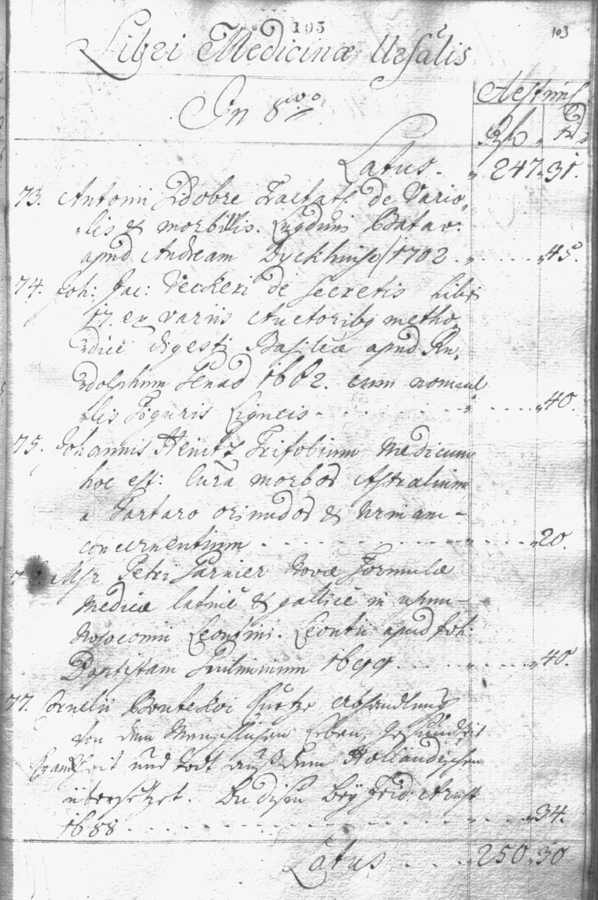 103
103
Libri Medicinæ Ursalis
In 8uo
Aestim
Rfl Xr
Latus. 247. 31.
73. Antoni Ddobre Tractat. de Vario,
lis & morbillis. Lugduni Batav:
apud Andream Dyckhuise 1702. 45.
74. Joh: Jac: Veckeri de Secretis Libri
17. ex variis Auctoribq metho,
dice digesti Basileæ apud Ru,
dolphum 1662. cum nonnul
llis Figuris Ligneis. 40.
75. Johannis Heintz Trifolium Medicum
hoc est: Cura morbor Astralium
a Tartaro oriundor & urinam
concernentium 20.
Msr Petri Garnier Novæ Formulæ
Medicæ latine & gallice in usum
Nosocomii Leonini. apud Joh:
Baptistam 1699. 40.
77. Cornelii Bontekoi Kurtze Abhandlung
Von dem Menschlichen Leben, Gesundheit
Krankheit und Todt auß dem Holländischen
übersetzet. Budissin Bey Frid: Arnst
1688 34.
Latus 250. 30